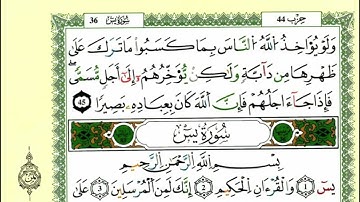 36 سُورَةُ يسٓ حِزْب 44
وَلَوْ يُؤَاخِذُ اللَّهُ النَّاسَ بِمَا كَسَبُوا مَا تَرَكَ عَلَىٰ
ظَهْرِهَا مِن دَآبَّةٍ وَلَٰكِن يُؤَخِّرُهُمُۥٓ إِلَىٰٓ أَجَلٍ مُّسَمًّى
فَإِذَا جَآءَ اجَلُهُمْ فَإِنَّ اللَّهَ كَانَ بِعِبَادِهِۦ بَصِيرًا 45
سُورَةُ يسٓ
بِسْمِ اللَّهِ الرَّحْمَٰنِ الرَّحِيمِ
يسٓ 1 وَالْقُرْءَانِ الْحَكِيمِ 2 إِنَّكَ لَمِنَ الْمُرْسَلِينَ 3 عَلَىٰ